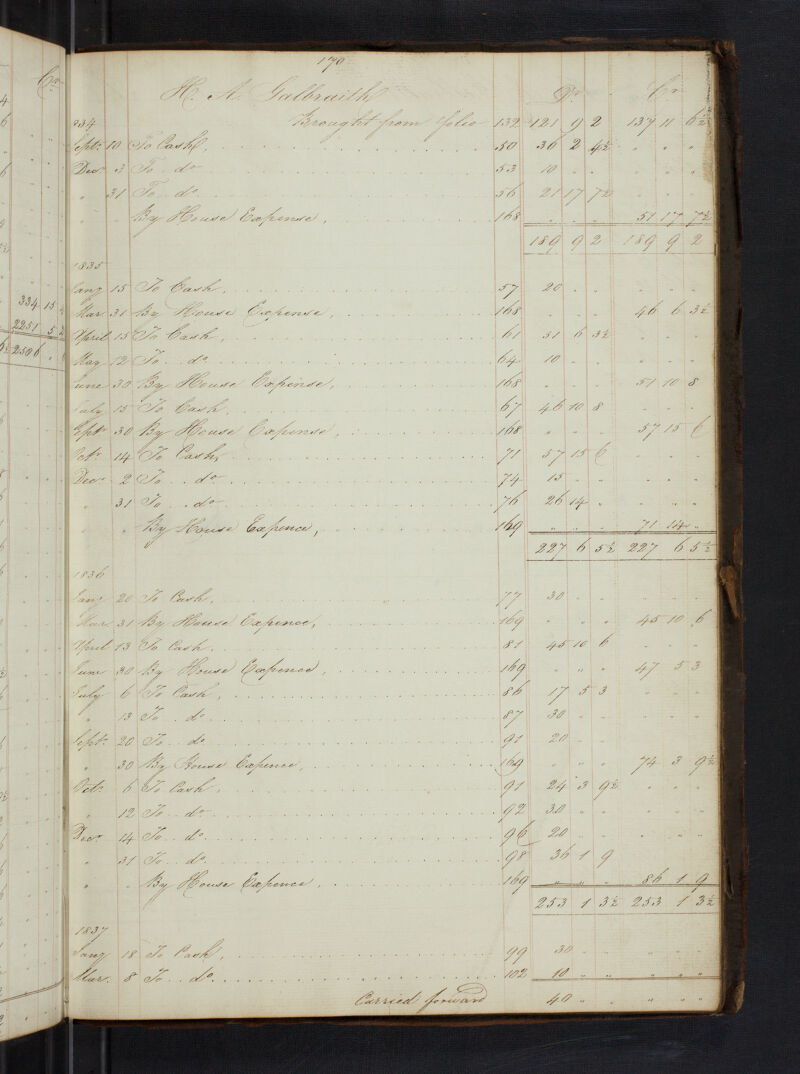 Cr
334 15
2251 5
170
H. A. Galbraith Dr Cr
834 Brought from folio 132 121 9 2 137 11 6½
Sept. 10 To Cash, 50 36 2 4½ " " "
Decr 3 To do 53 10 " " " " "
" 31 To do 56 21 17 7½ " " "
" " By House Expense, 168 " " " 51 17 7½
189 9 2 189 9 2
1835
Jany 15 To Cash, 57 20 " " " " "
Mar 31 By House Expense, 168 " " " 46 6 3½
April 15 To Cash, 61 51 6 3½ " " "
May 12 To do 64 10 " " " " "
June 30 By House Expense, 168 " " " 51 10 8
July 15 To Cash, 67 46 10 8 " " "
Sept. 30 By House Expense, 168 " " " 57 15 6
Octr 14 To Cash, 71 57 15 6 " " "
Decr 2 To do 74 15 " " " " "
" 31 To do 76 26 14 " " " "
" " By House Expence, 169 " " " 71 14 "
227 6 5½ 227 6 5½
1836
Jany 20 To Cash, 77 30 " " " " "
Mar. 31 By House Expence, 169 " " " 45 10 6
April 13 To Cash, 81 45 10 6 " " "
June 30 By House Expence, 169 " " " 47 5 3
July 6 To Cash, 86 17 5 3 " " "
" 13 To do 87 30 " " " " "
Sept. 20 To do 91 20 " " " " "
" 30 By House Expence, 169 " " " 74 3 9½
Octr 6 To Cash, 91 24 3 9½ " " "
" 12 To do 92 30 " " " " "
Decr 14 To do 96 20 " " " " "
" 31 To do 98 36 1 9 " " "
" " By House Expence, 169 " " " 86 1 9
253 1 3½ 253 1 3½
1837
Jany 18 To Cash, 99 30 " " " " "
Mar. 8 To do 102 10 " " " " "
Carried forward 40 " " " " "